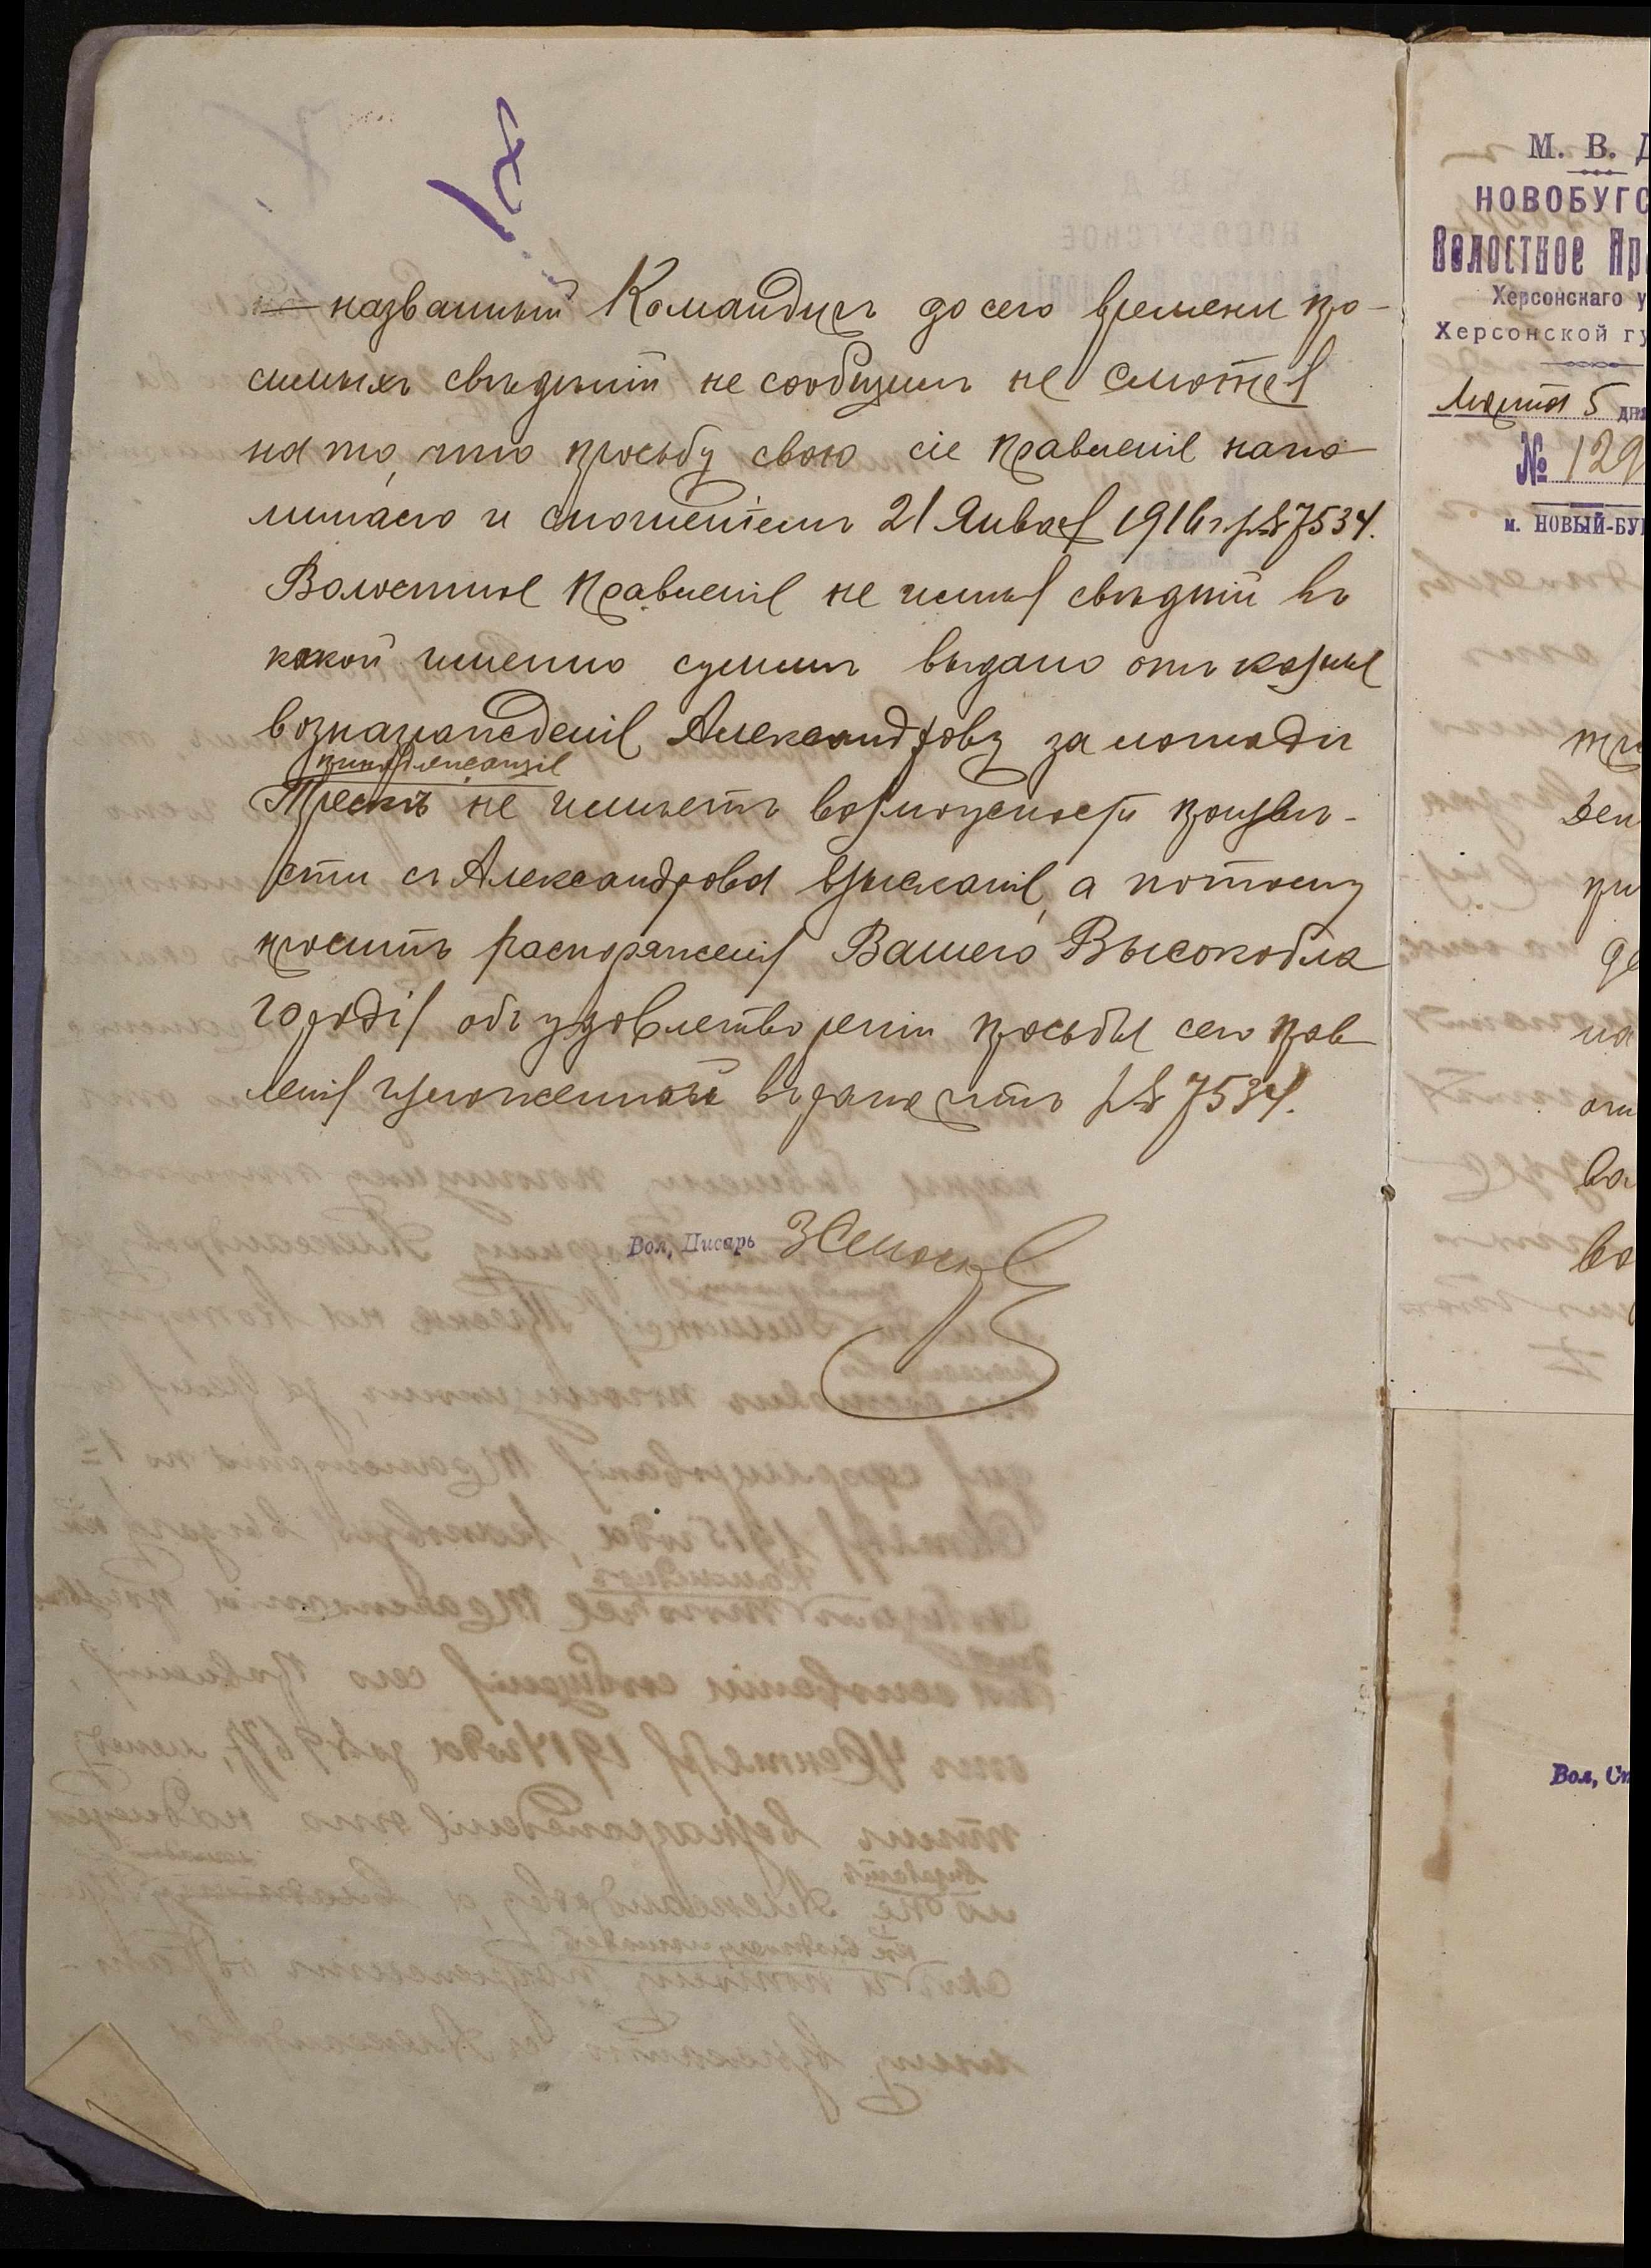 названный Командиръ до сего времени про-
симыхъ свѣдѣнiй не сообщилъ не смотря
на то, что просьбу свою сiе Правленiе напо-
минало и сношенiемъ 21 Января 1916 г. за № 7534.
Волостное Правленiе не имѣя свѣдѣнiй въ
какой именно суммѣ выдано отъ казны
вознагражденiе Александрову за лошадь
Трескъ не имѣетъ возможности произве-
сти съ Александрова взысканiе, а потому
проситъ распоряженiя Вашего Высокобла
городiя объ удовлетворенiи просьбы сего Прав
ленiя изложенной въ за № 7534.
Вол, Писарь
М. В. Д
НОВОБУГС
Волостное Пр
Херсонскаго у
Херсонской гу
Марта 5 дня
№ 129
м. НОВЫЙ-БУ
Вол, Ст